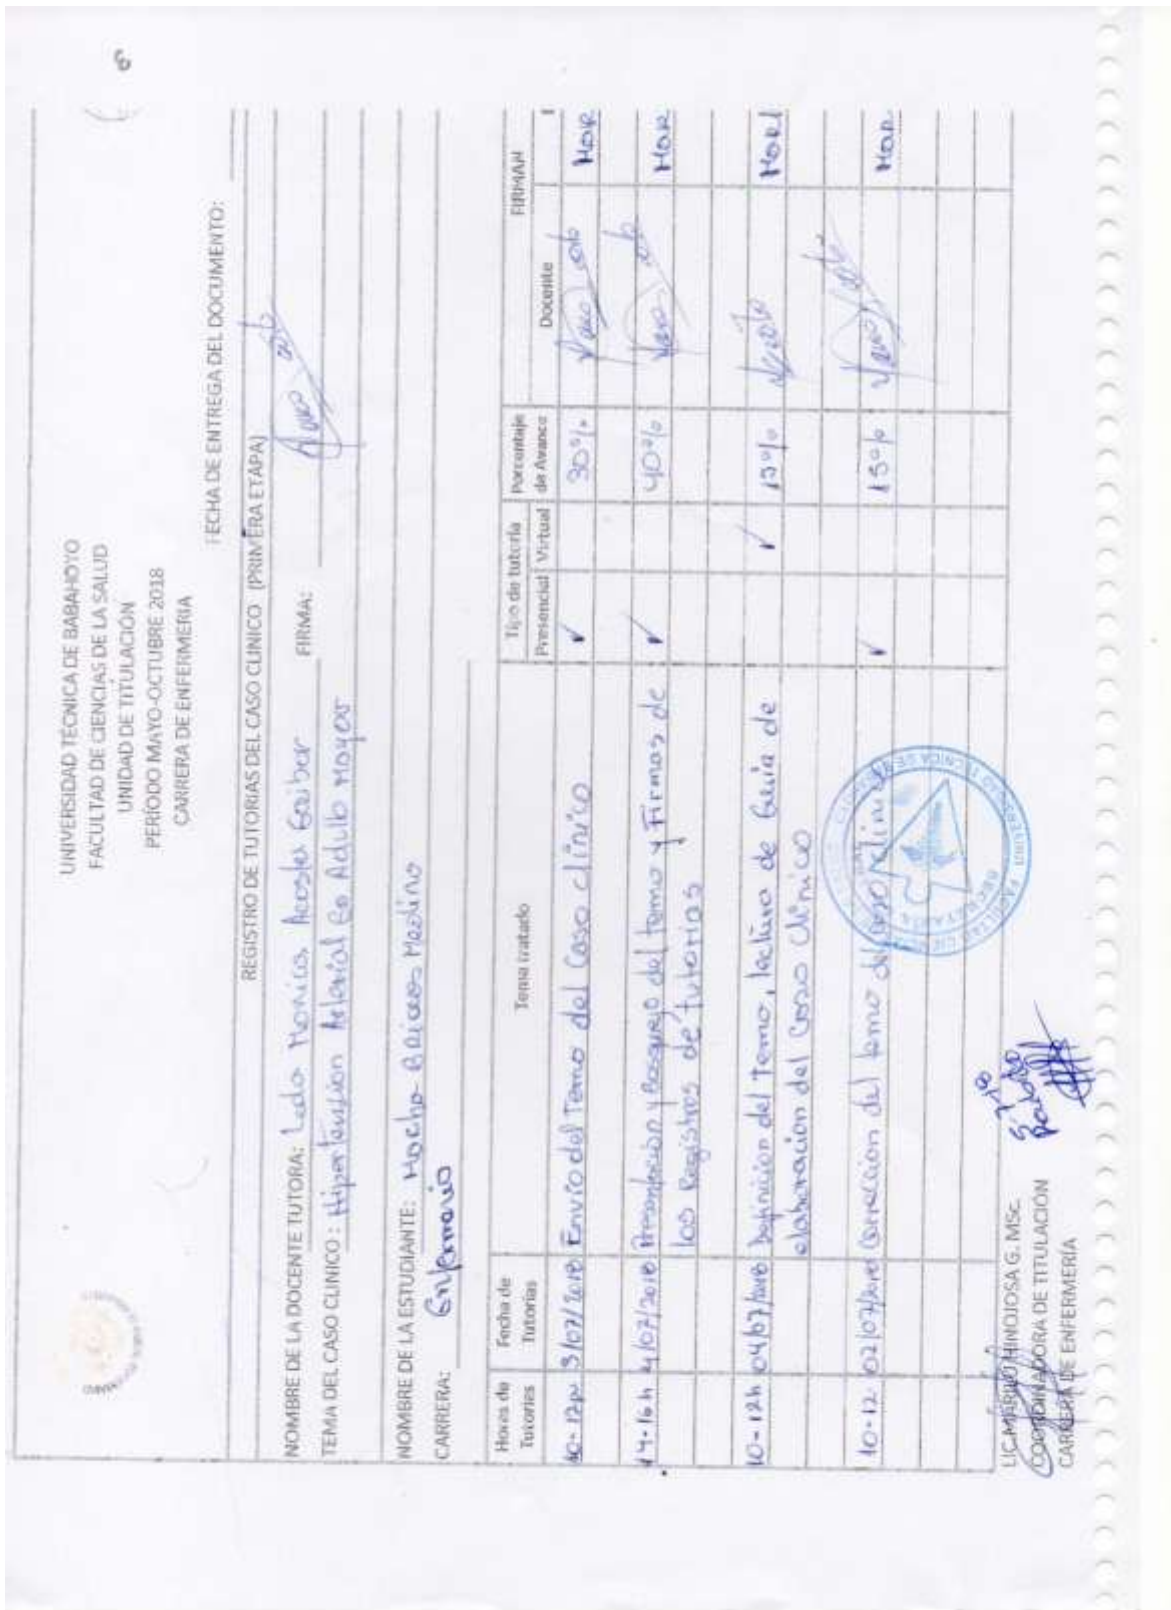 UNIVERSIDAD TÉCNICA DE BABAHOYO
FACULTAD DE CIENCIAS DE LA SALUD
UNIDAD DE TITULACIÓN
PERÍODO MAYO-OCTUBRE 2018
CARRERA DE ENFERMERIA
FECHA DE ENTREGA DEL DOCUMENTO:
REGISTRO DE TUTORIAS DEL CASO CLINICO (PRIMERA ETAPA)
NOMBRE DE LA DOCENTE TUTORA: Lcda Monica Acosta Gaibor FIRMA:
TEMA DEL CASO CLINICO : Hipertension Arterial En Adulto Mayor
NOMBRE DE LA ESTUDIANTE: Macho Medina
CARRERA: Enfermeria
Horas de Tutorias Fecha de Tutorias Tema tratado Tipo de tutoría Porcentaje de Avance FIRMAN
Presencial Virtual Docente
10-12 3/07/2018 Envío del Tema del Caso clínico ✓ 30%
14-16 h 4/07/2018 del Tema y Firmas de ✓ 40%
los Registros de tutorias
10-12h 04/07/2018 Definicion del Tema, lectura de Guia de ✓ 15%
elaboracion del Caso Clínico
10-12 02/07/2018 Correccion del tema del caso clinico ✓ 15%
LIC. MARILU HINOJOSA G. MSc.
COORDINADORA DE TITULACIÓN
CARRERA DE ENFERMERÍA